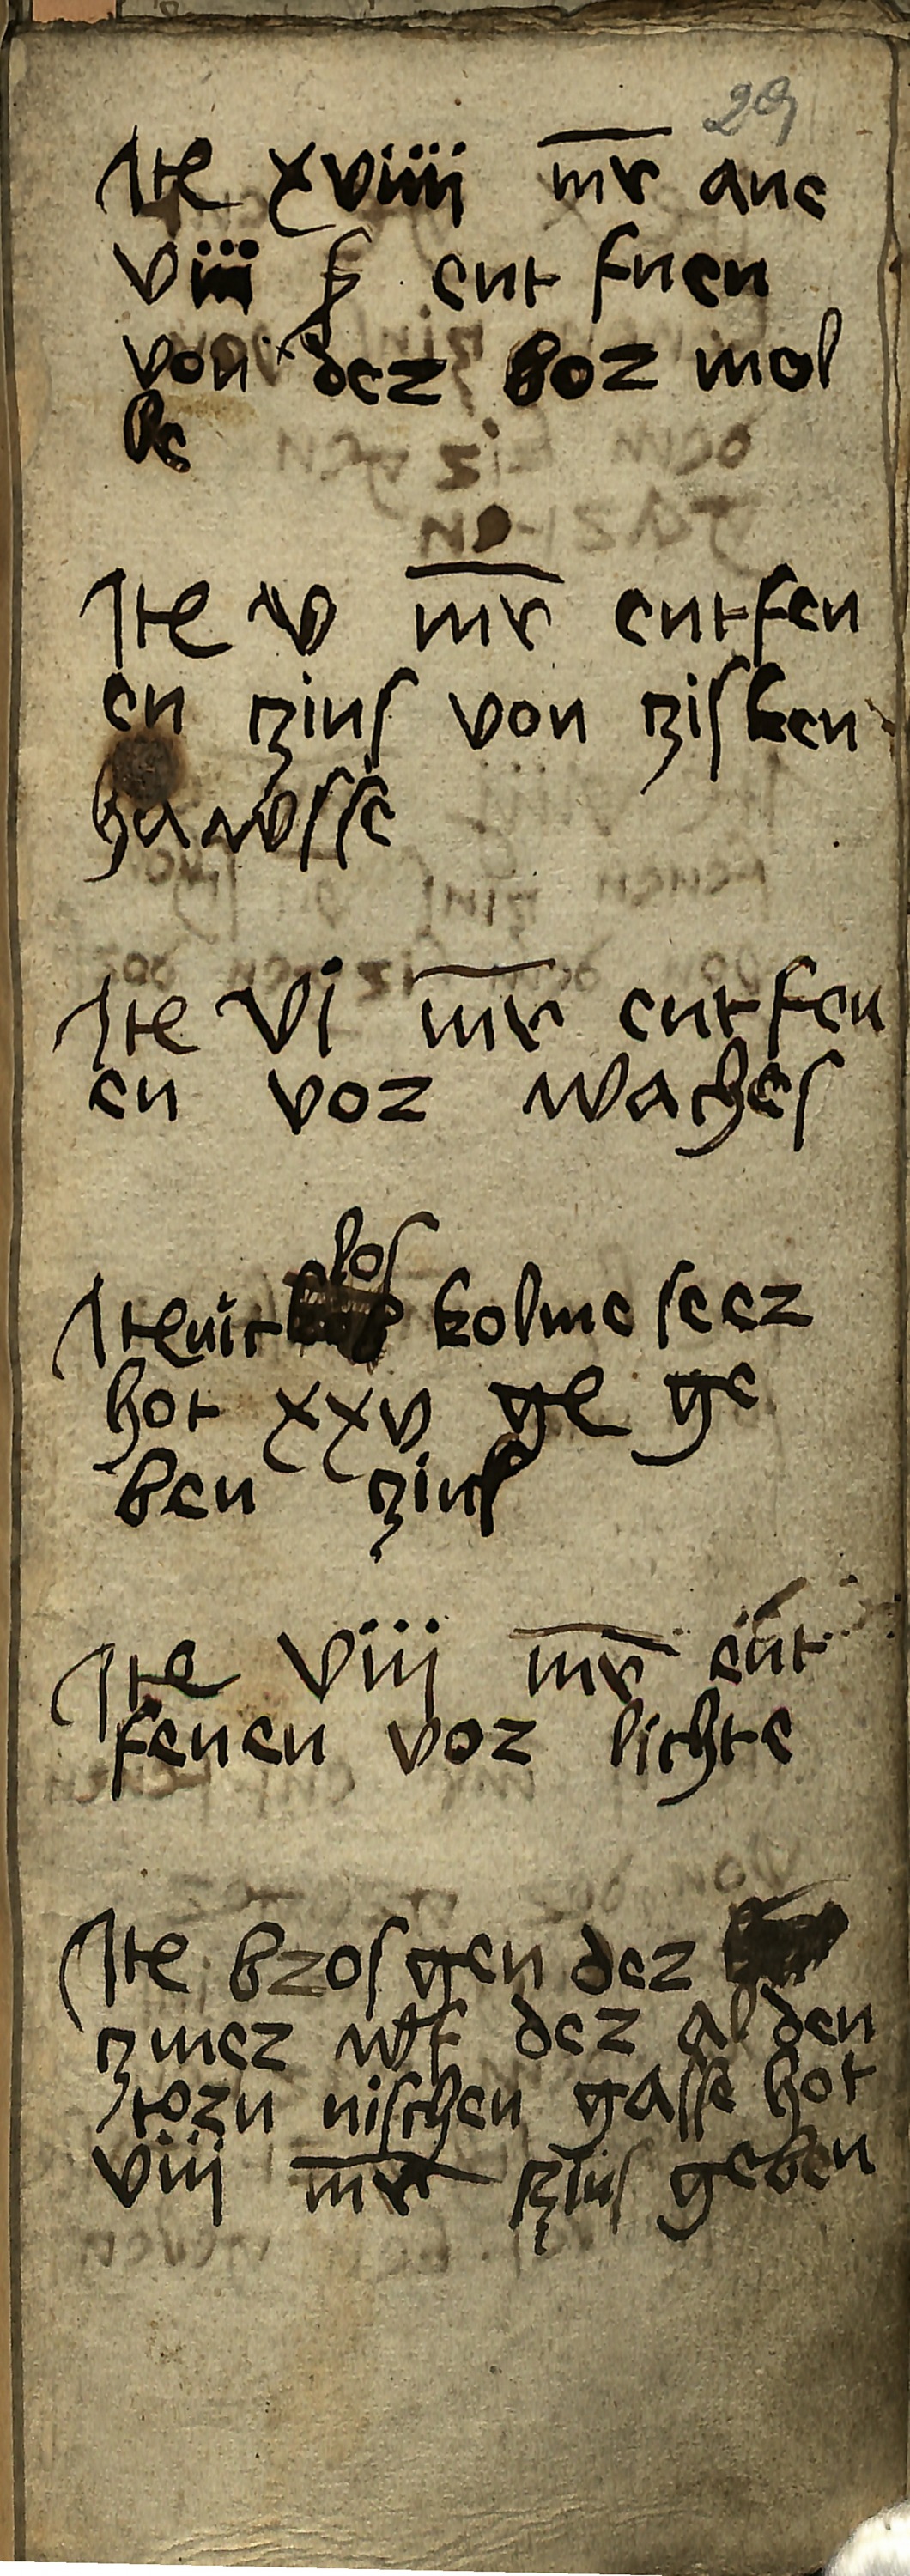 29
Ite xviiii mr ane
viii ſ ent fnen
von der bor mol
be
Ite v mr entfen
en zinſ von ziſken
hawſſe
Ite vi mr entfen
en vor wacheſ
loſ
Ite nit kolmeſeer
hot xxv ge ge
ben zinſ
Ite viii mr ent
fenen vor lichte
Ite broſgen der
zmer wff der alden
torn niſchen gaſſe hot
viii mr zinſ geben